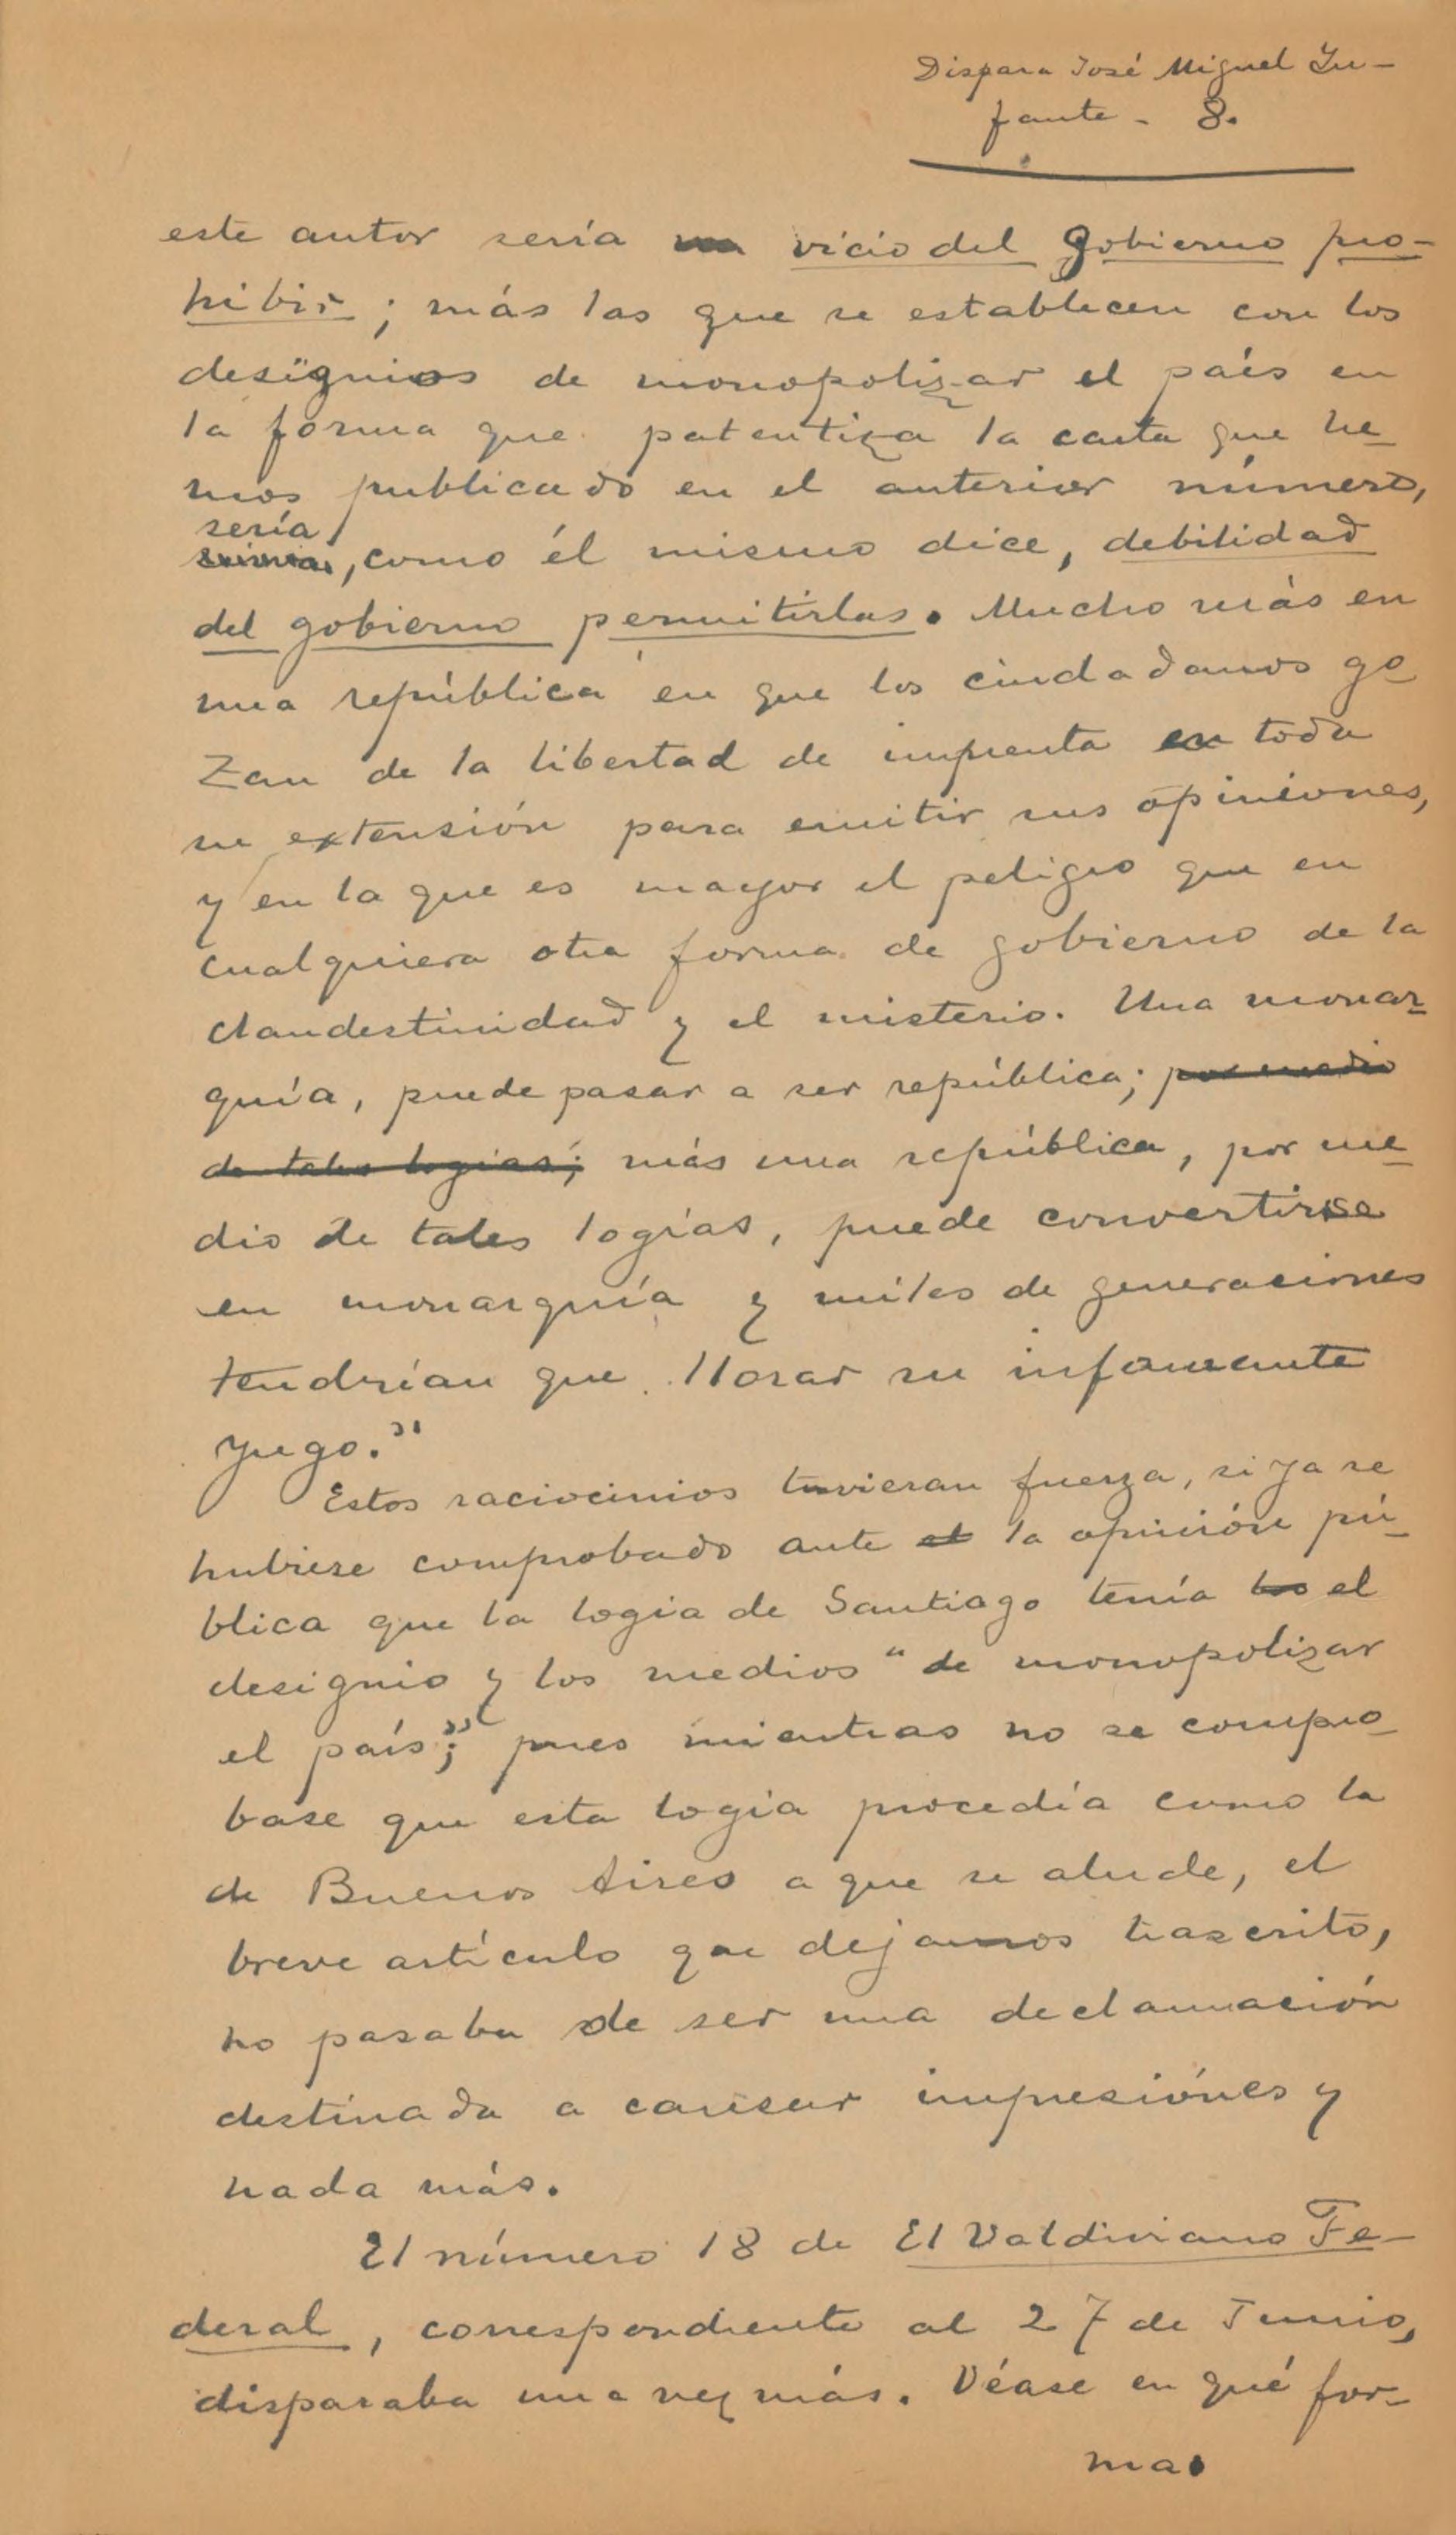 Dispara José Miguel In-
fante - 8.
este autor sería un vicio del gobierno pro-
hibir; más las que se establecen con los
designios de monopolizar el país en
la forma que patentiza la carta que he-
mos publicado en el anterior número,
sería
, como él mismo dice, debilidad
del gobierno permitirlas. Mucho más en
una república en que los ciudadanos go-
zan de la libertad de imprenta en toda
su extensión para emitir sus opiniones,
y en la que es mayor el peligro que en
cualquiera otra forma de gobierno de la
clandestinidad y el misterio. Una monar-
quía, puede pasar a ser república; por medio
de tales logias; más una república, por me-
dio de tales logias, puede convertirse
en monarquía y miles de generaciones
tendrían que llorar su infamante
yugo."
Estos raciocinios tuvieran fuerza, si ya se
hubiese comprobado ante el la opinión pú-
blica que la logia de Santiago tenía los el
designio y los medios "de monopolizar
el país"; pues mientras no se compro-
base que esta logia procedía como la
de Buenos Aires a que se alude, el
breve artículo que dejamos trascrito,
no pasaba de ser una declamación
destinada a causar impresiónes y
nada más.
El número 18 de El Valdiviano Fe-
deral, correspondiente al 27 de Junio,
disparaba una vez más. Véase en qué for-
ma.